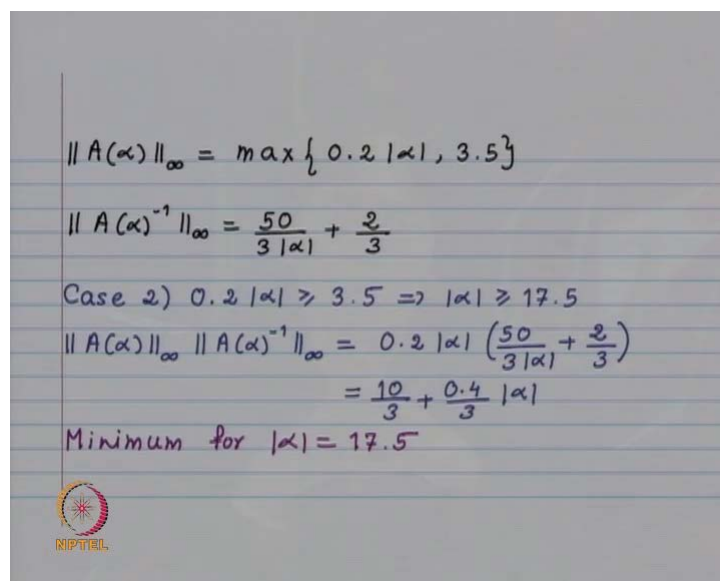 ‖ A(α) ‖∞ = max{ 0.2 |α| , 3.5}
‖ A(α)⁻¹ ‖∞ = 50/(3 |α|) + 2/3
Case 2) 0.2 |α| ⩾ 3.5 => |α| ⩾ 17.5
‖ A(α) ‖∞ ‖ A(α)⁻¹ ‖∞ = 0.2 |α| (50/(3 |α|) + 2/3)
= 10/3 + 0.4/3 |α|
Minimum for |α| = 17.5
NPTEL